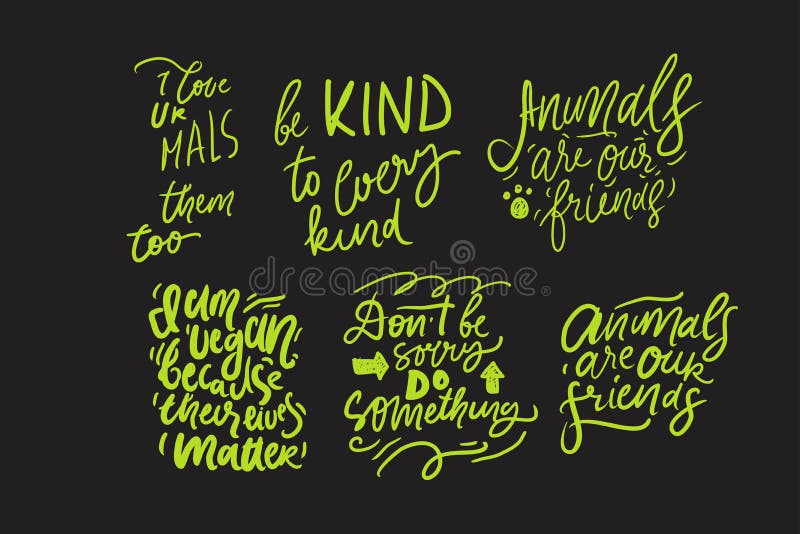 I love
UR
MALS
them
too
be KIND
to every
kind
Animals
are our
friends
I am
vegan
because
their eives
matter
Don't be
sorry
DO
something
animals
are our
friends
dreamstime